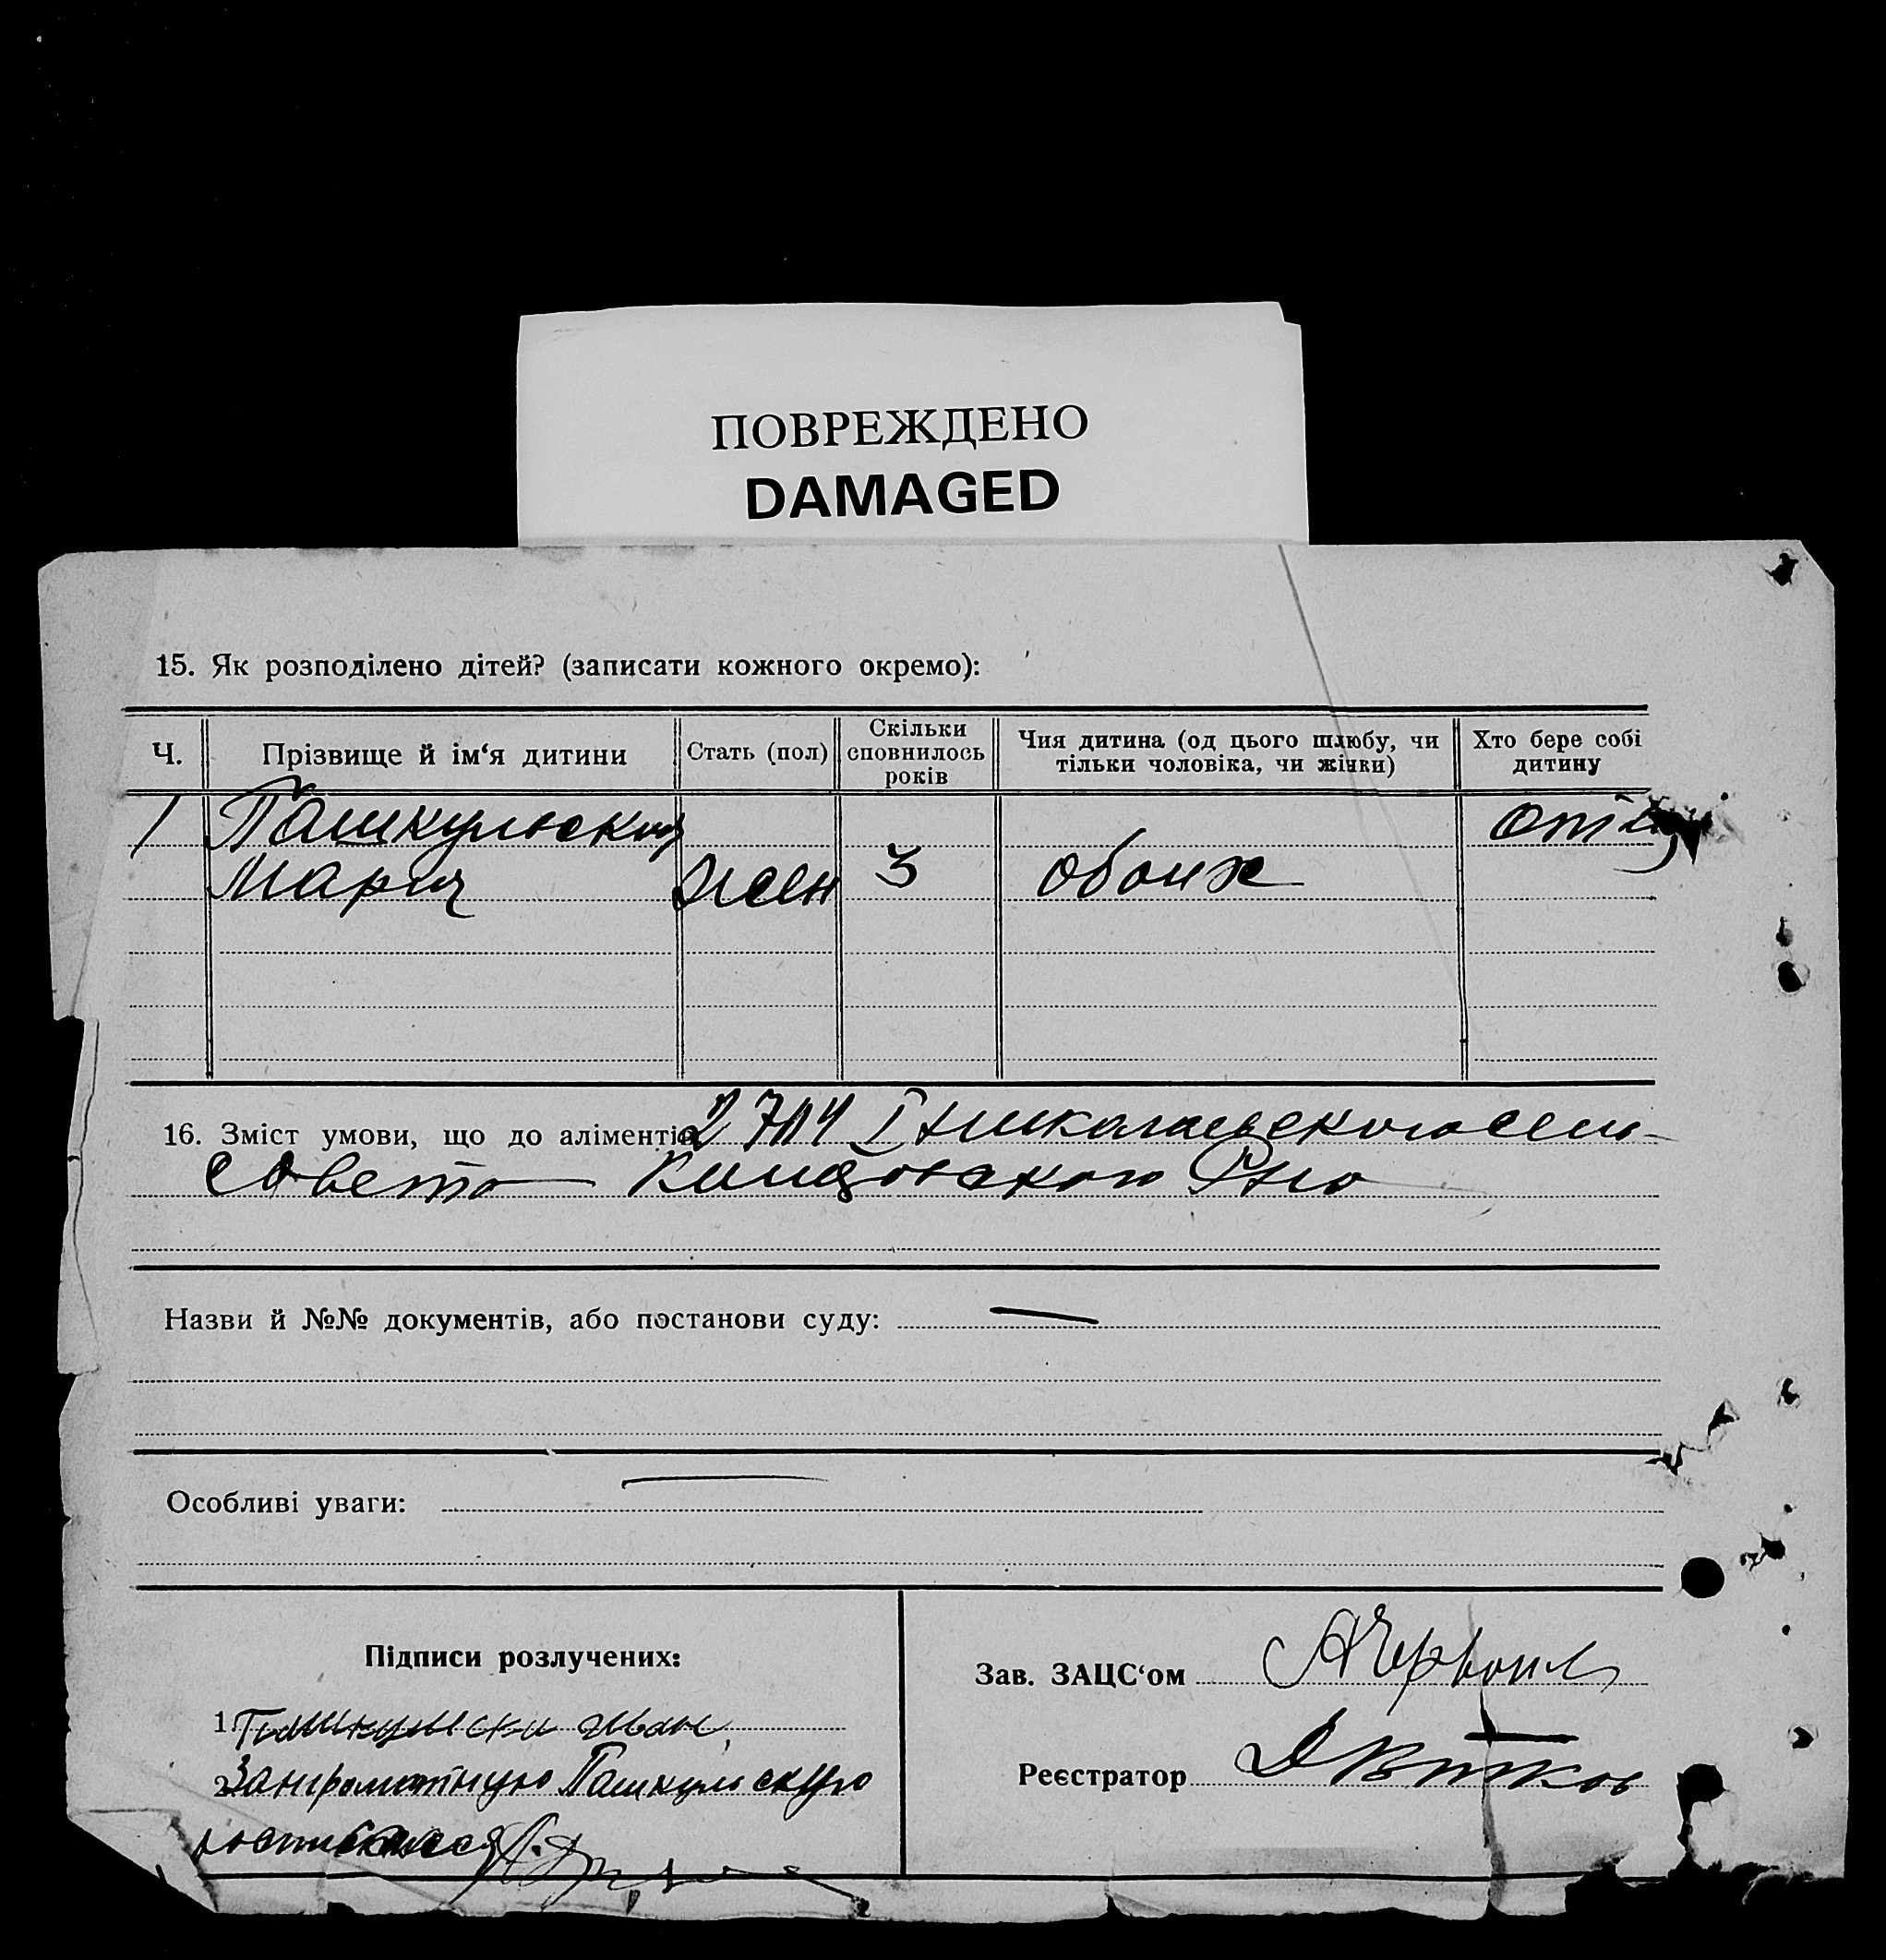 ПОВРЕЖДЕНО
DAMAGED
15. Як розподілено дітей? (записати кожного окремо):
Ч.
Прізвище й ім‘я дитини
Стать (пол)
Скільки сповнилось років
Чия дитина (од цього шлюбу, чи тільки чоловіка, чи жінки)
Хто бере собі дитину
1 Пашкульская
Мария жен 3 обоих
16. Зміст умови, що до аліментів
совета
Назви й №№ документів, або постанови суду: —
Особливі уваги: —
Підписи розлучених:
1. Пашкульски Иван
2. За неграмотную Пашкульскую
Зав. ЗАЦС‘ом
Реєстратор